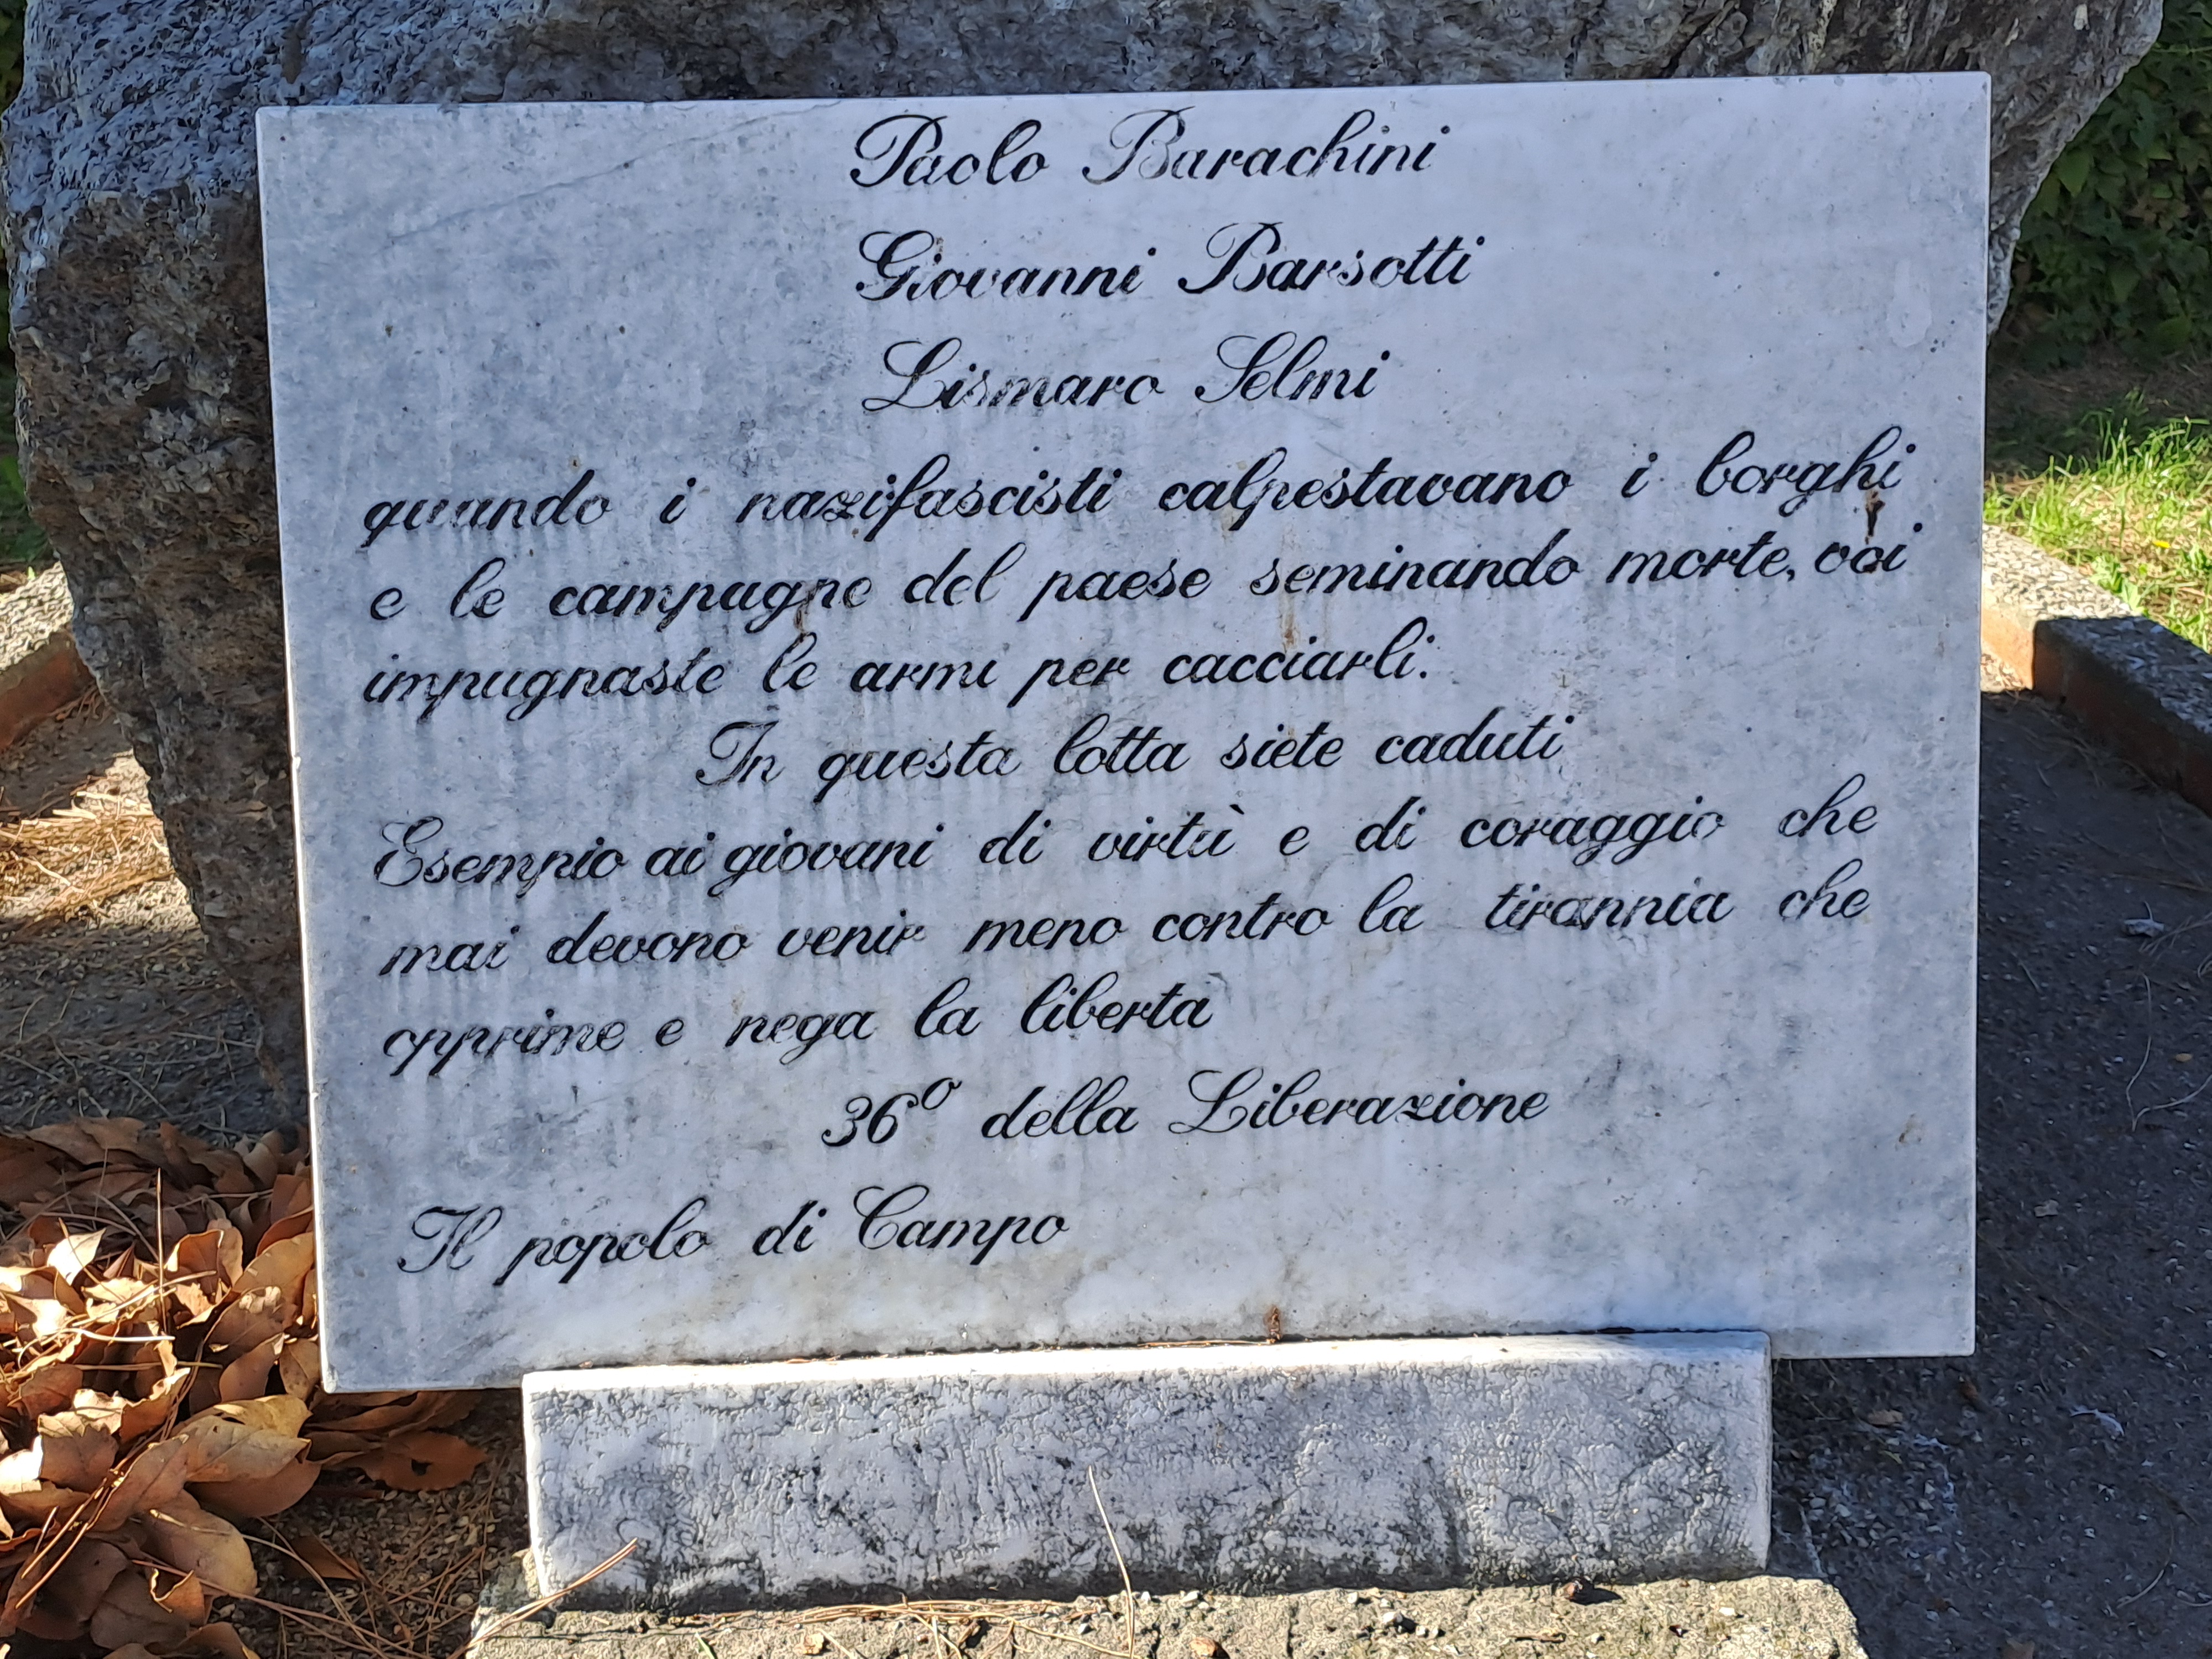 Paolo Barachini
Giovanni Barsotti
Lismaro Selmi
quando i nazifascisti calpestavano i borghi
e le campagne del paese seminando morte, voi
impugnaste le armi per cacciarli.
In questa lotta siete caduti
Esempio ai giovani di virtù e di coraggio che
mai devono venir meno contro la tirannia che
opprime e nega la libertà
36º della Liberazione
Il popolo di Campo